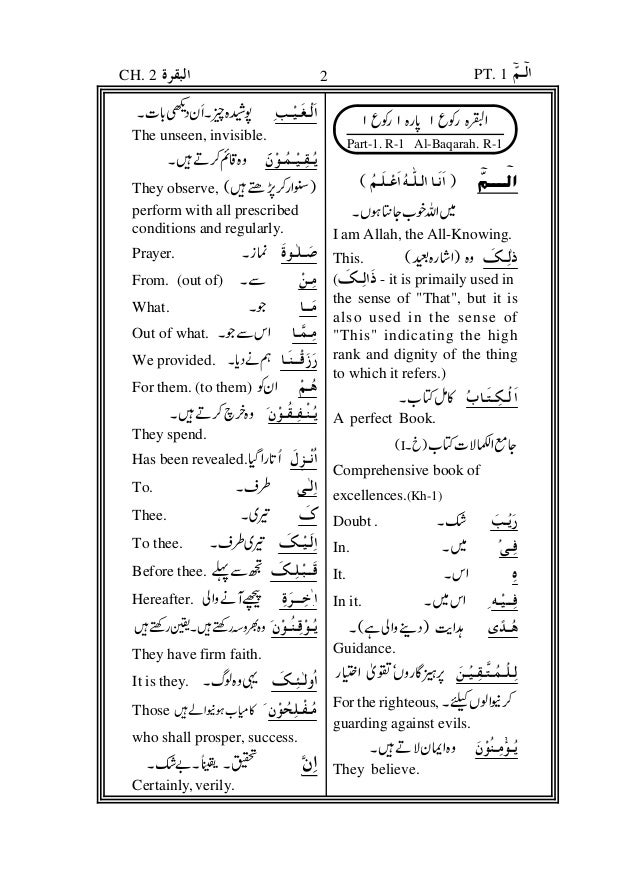 CH. 2 البقرة 2 PT. 1 الٓـمّٓ
البقرہ رکوع ۱ پارہ ۱ رکوع ۱
Part-1. R-1 Al-Baqarah. R-1
الٓـــمّٓ (اَنَا اللّٰهُ اَعْلَمُ)
میں اللہ خوب جانتا ہوں۔
I am Allah, the All-Knowing.
This. ذٰلِکَ وہ (اشارہ بعید)
(ذَالِکَ - it is primaily used in
the sense of "That", but it is
also used in the sense of
"This" indicating the high
rank and dignity of the thing
to which it refers.)
اَلْکِتَابُ کامل کتاب۔
A perfect Book.
جامع الکمالات کتاب (خ۔I)
Comprehensive book of
excellences.(Kh-1)
Doubt . رَیْبَ شک۔
In. فِیْ میں۔
It. ہِ اس۔
In it. فِیْهِ اس میں۔
هُدًی ہدایت (دینے والی ہے)۔
Guidance.
لِلْمُتَّقِیْنَ پرہیزگاروں/تقویٰ اختیار
For the righteous, کرنیوالوں کیلئے۔
guarding against evils.
یُؤْمِنُوْنَ وہ ایمان لاتے ہیں۔
They believe.
اَلْغَیْبِ پوشیدہ چیز۔ اَن دیکھی بات۔
The unseen, invisible.
یُقِیْمُوْنَ وہ قائم کرتے ہیں۔
They observe, (سنوار کر پڑھتے ہیں)
perform with all prescribed
conditions and regularly.
Prayer. صَلٰوةَ نماز۔
From. (out of) مِنْ سے۔
What. مَا جو۔
Out of what. مِمَّا اس سے جو۔
We provided. رَزَقْنَا ہم نے دیا۔
For them. (to them) هُمْ ان کو
یُنْفِقُوْنَ وہ خرچ کرتے ہیں۔
They spend.
Has been revealed. اُنْزِلَ اُتارا گیا۔
To. اِلٰی طرف۔
Thee. کَ تیری۔
To thee. اِلَیْکَ تیری طرف۔
Before thee. قَبْلِکَ تجھ سے پہلے
Hereafter. اٰخِرَةِ پیچھے آنے والی
یُوْقِنُوْنَ وہ بھروسہ رکھتے ہیں۔ یقین رکھتے ہیں
They have firm faith.
It is they. اُولٰئِکَ یہی وہ لوگ۔
Those مُفْلِحُوْنَ کامیاب ہونیوالے ہیں
who shall prosper, success.
اِنَّ تحقیق۔ یقیناً۔ بے شک۔
Certainly, verily.